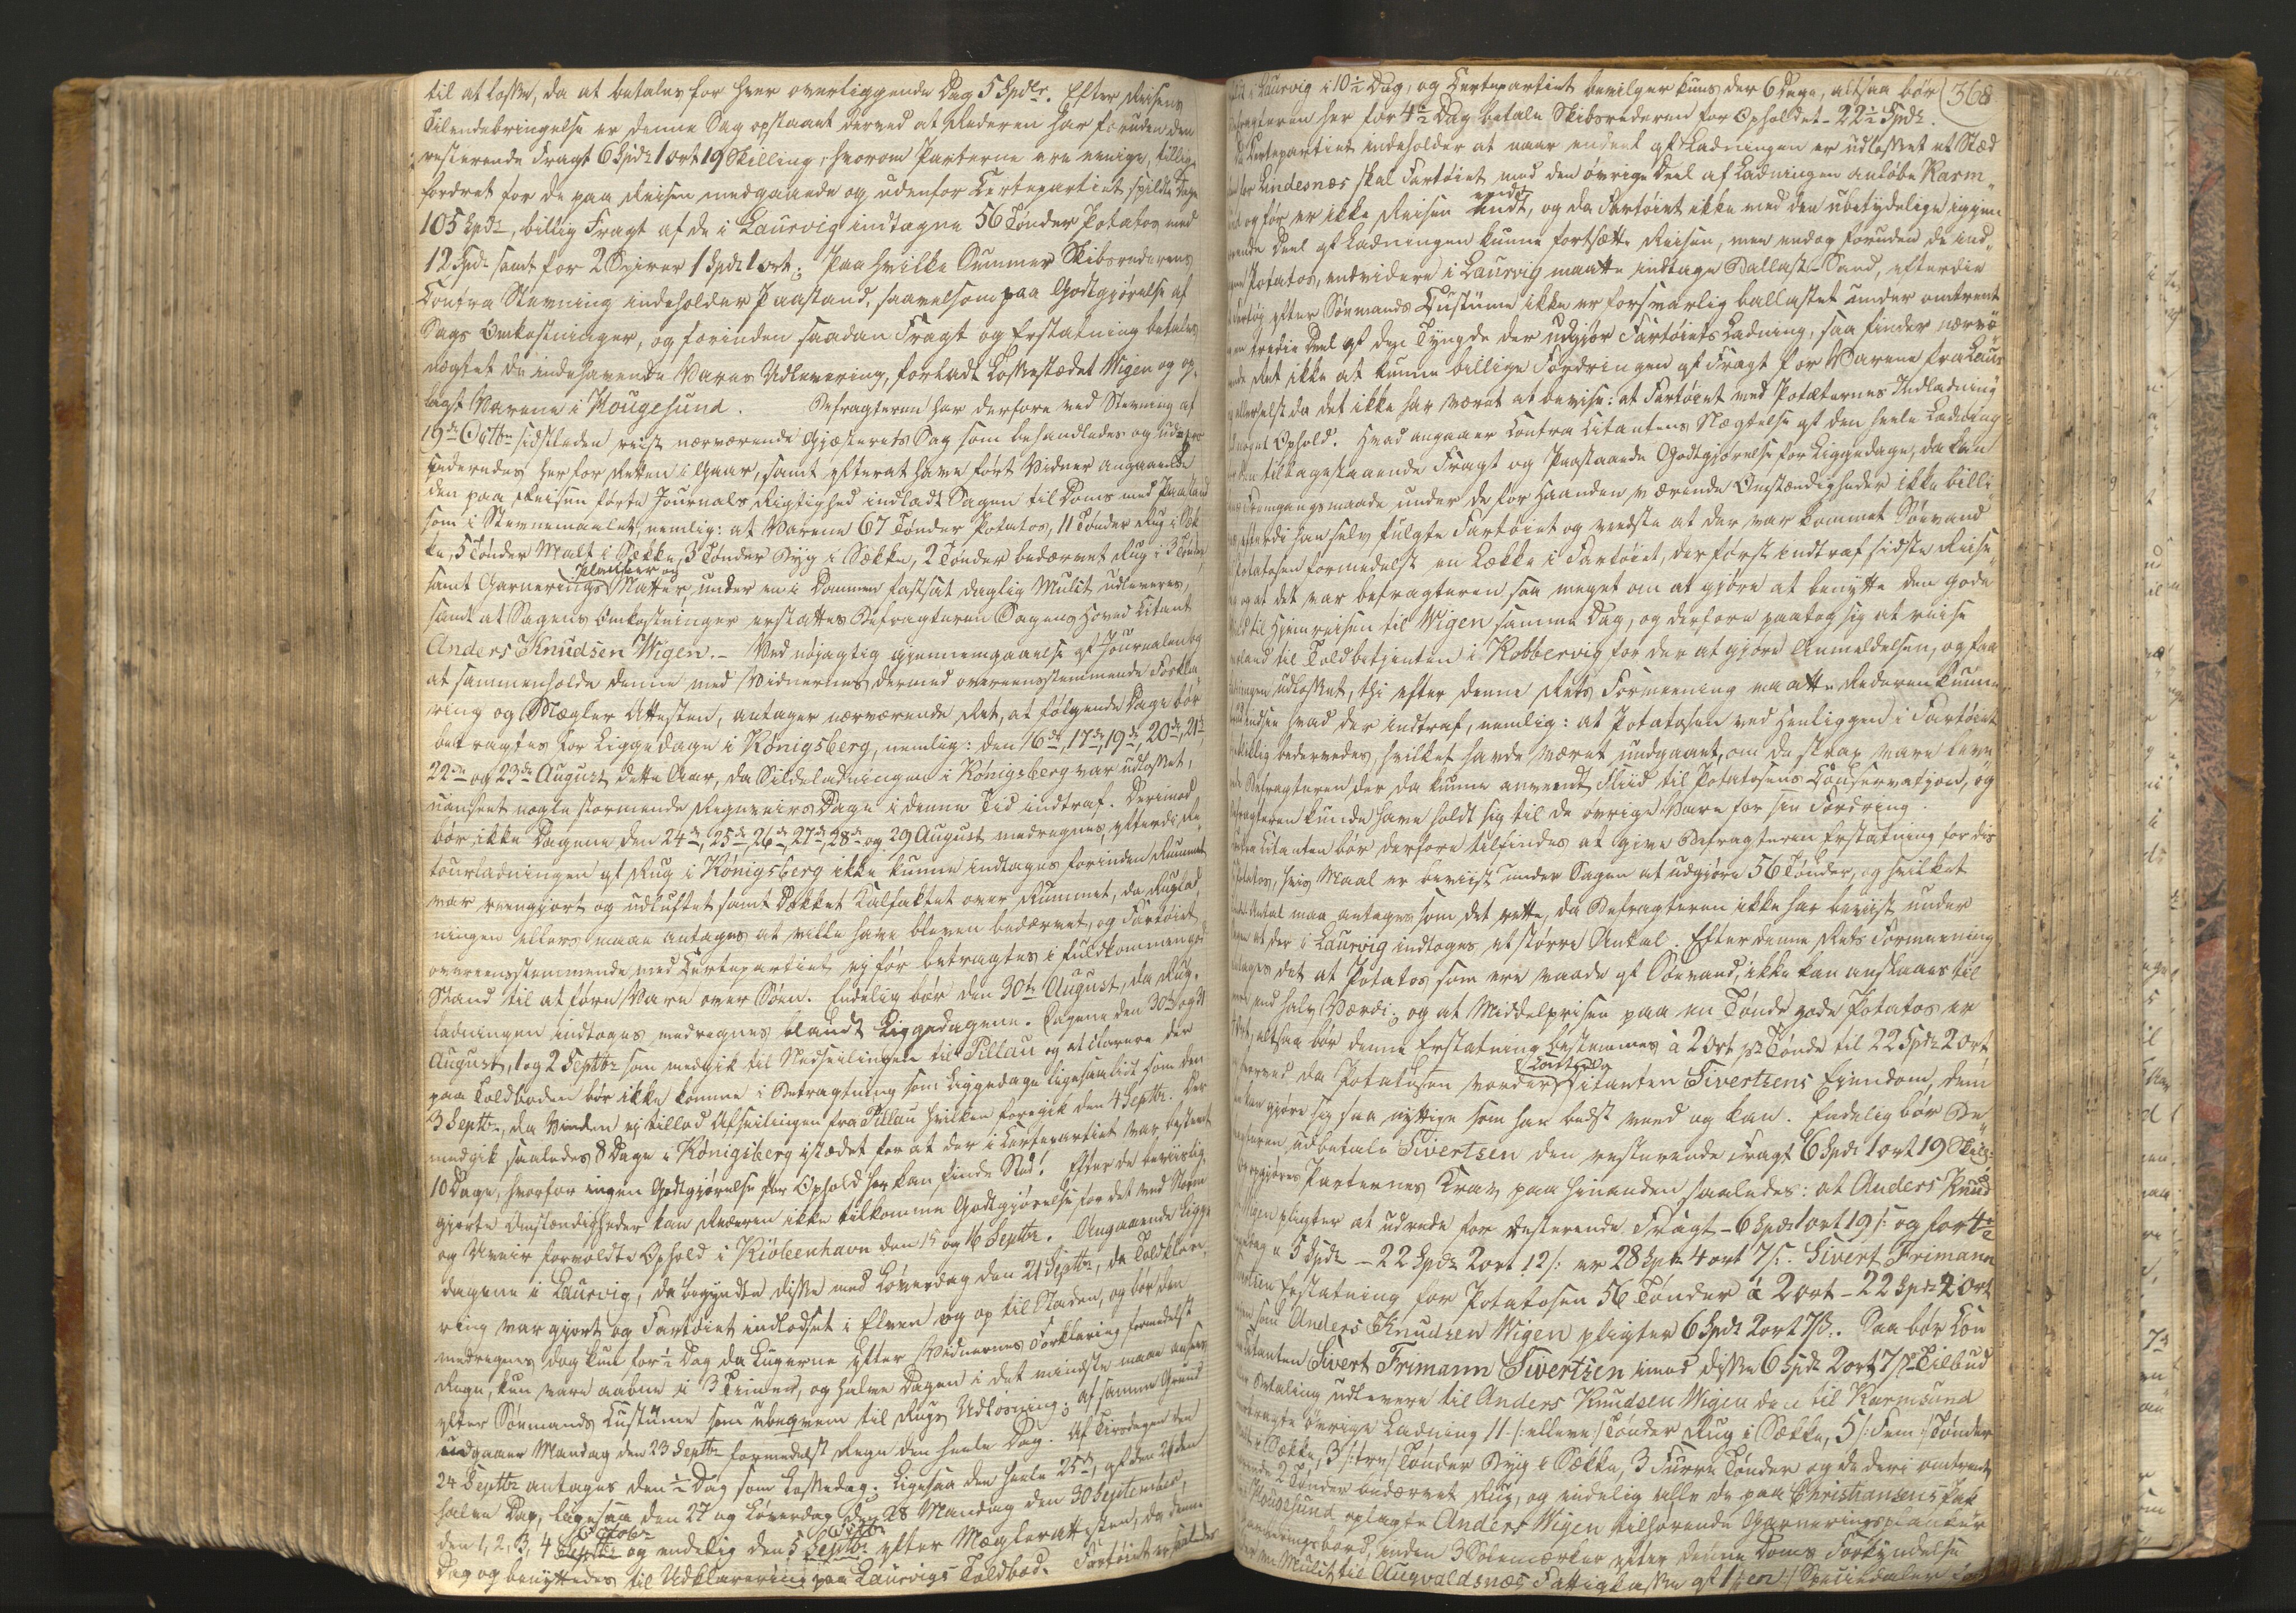 til at losse, da at betales for hver overliggende Dag 5 Spdlr. Efter Reisens
Tilendebringelse er denne Sag opstaaet derved at Rederen har foruden den
resterende Fragt 6 Spdr 1 ort 19 Skilling, hvorom Parterne ere enige, tillige
fordret for de paa Reisen medgaaede og udenfor Certepartiet spildte Dage
105 Spdr, billig Fragt af de i Laurvig indtagne 56 Tønder Potatos med
12 Spdr samt for 2 Skiver 1 Spdr 1 ort; Paa hvilke Summer Skibsrederens
Contra Stevning indeholder Paastand, saavelsom paa Godtgjørelse af
Sags Omkostninger, og forinden saadan Fragt og Erstatning betales
nægtet de indehavende Vares Udlevering, forladt Lossestædet Wigen og op-
lagt Varene i Hougesund. Befragteren har derfore ved Stevning af
19de Octbr sidstleden reist nærværende Gjæsterets Sag som behandledes og
 herfor Retten i Gaar, samt efterat have ført Vidner angaaende
den paa Reisen førte Journals Rigtighed indladt Sagen til Doms med Paastand
som i Stevnemaalet, nemlig: at Varene 67 Tønder Potatos, 11 Tønder Rug i Sæk-
ke, 5 Tønder Malt i Sække, 3 Tønder Byg i Sække, 2 Tønder bedærvet Rug i 3 Tønder
Planker og
samt Garnerings Matter, under en i Dommen fastsat daglig Mulct udleveres,
samt at Sagens Omkostninger erstattes Befragteren Sagens Hoved Citant
Anders Knudsen Wigen. – Ved nøjagtig gjennemgaaelse af Journalen og
at sammenholde denne med Vidnernes dermed overeensstemmende Forkla-
ring og Mægler Attesten, antager nærværende Ret, at følgende Dage bør
betragtes for Liggedage i Königsberg, nemlig: den 16de, 17de, 19de, 20de, 21de,
22de og 23de August dette Aar, da Sildeladningen i Königsberg var udlosset,
uanseet nogle stormende Regnveirs Dage i denne Tid indtraf. Derimod
bør ikke Dagene den 24de, 25de, 26de, 27de, 28de og 29 August medregnes, efterdi Re-
tourladningen af Rug i Königsberg ikke kunne indtages forinden Rummet
var reengjort og udluftet samt Dækket Kalfaktet over Rummet, da Ruglad-
ningen ellers maae antages at ville have bleven bedærvet, og Fartøiet
overeensstemmende med Certepartiet ej før betragtes i fuldkommen god
Stand til at føre Vare over Søen. Endelig bør den 30te August, da Rug-
ladningen indtoges medregnes blandt Liggedagene. Dagene den 30te og 31
August, 1 og 2 Septbr som medgik til Nedseilingen til Pillau og at clarere der
paa Toldboden bør ikke komme i Betragtning som Liggedage ligesaalidt som den
3 Septbr, da Vinden ej tillod Afseilingen fra Pillau hvilken foregik den 4 Septbr. Der
medgik saaledes 8 Dage i Königsberg istædet for at der i Certepartiet var bestemt
10 Dage, hvorfor ingen Godtgjørelse for Ophold her kan finde Sted. Efter de beviislig-
gjorte Omstændigheder kan Rederen ikke tilkomme Godtgjørelse for det ved Storm
og Uveir forvoldte Ophold i Kiöbenhavn den 15 og 16 Septbr. Angaaende Ligge-
dagene i Laurvig, da begyndte disse med Løverdag den 21 Septbr, da Toldklare-
ring var gjort og Fartøiet indlodset i Elven og op til Staden, og bør den
medregnes dog kun for ½ Dag da Lugerne efter Vidnernes Forklaring formedelst
Regn, kun vare aabne i 3 Timer, og halve Dagen i det mindste maae ansees
efter Sømands Custüme som ubeqvem til Rugs Udlosning; af samme Grund
undgaaer Mandag den 23 Septbr formedelst Regn den heele Dag. Af Tirsdagen den
24 Septbr antages den ½ Dag som Lossedag. Ligesaa den heele 25de, af den 26 den
halve Dag, ligesaa den 27 og Løverdag den 28 Mandag den 30 September,
Octobr
den 1, 2, 3, 4 Septbr og endelig den 5 Septbr efter Mæglerattesten, da denne
Dag og benyttedes til Udklarering paa Laurvigs Toldbod. Fartøiet
368
 i Laurvig i 10½ Dag, og Certepartiet bevilger kuns der 6 Dage, altsaa bør
 her for 4½ Dag betale Skibsrederen for Opholdet – 22½ Spdr.
 Certepartiet indeholder at naar endeel af Ladningen er udlosset et Stæd
 Lindesnæs skal Fartøiet med den øvrige Deel af Ladningen anløbe Karm-
 og før er ikke Reisen endt, og da Fartøiet ikke med den ubetydelige igjen-
 Deel af Ladningen kunne fortsætte Reisen, men endog foruden de ind-
 Potatos, endvidere i Laurvig maatte indtage Ballast-Sand, efterdie
 efter Sømands Custüme ikke er forsvarlig ballastet under omtrent
 tredie Deel af den Tyngde der udgjør Fartøiets Ladning, saa finder nærvæ-
 Ret ikke at kunne billige Fordringen af Fragt for Varene fra Laur-
 allerhelst da det ikke har været at bevise: at Fartøiet ved Potaternes Indladning
 noget Ophold. Hvad angaaer Contra Citantens Nægtelse af den heele Ladning
 tilbagestaaende Fragt og Paastaaede Godtgjørelse for Liggedage, da kan
 Fremgangsmaade under de for Haanden værende Omstændigheder ikke billi-
 efterdi han selv fulgte Fartøiet og vedste at der var kommet Søevand
 Potatosen formedelst en Lække i Fartøiet, der først indtraf sidste Reise
 og at det var befragteren saa meget om at gjøre at benytte den gode
 til Hjemreisen til Wigen samme Dag, og derfore paatog sig at reise
 til Toldbetjenten i Kobbervig for der at gjøre Anmeldelsen, og faa
 udlosset, thi efter denne Rets Formeening maatte Rederen kunne
 indsee hvad der indtraf, nemlig: at Potatosen ved Henliggen i Fartøiet
 bedervedes, hvilket havde været undgaaet, om de strax vare leve-
 Befragteren der da kunne anvendt Fliid til Potatosens Conservation, og
 kunde have holdt sig til de øvrige Vare for sin Fordring.
 Citanten bør derfore tilfindes at give Befragteren Erstatning for dis-
 Potatos, hvis Maal er beviist under Sagen at udgjøre 56 Tønder, og hvilket
 Antal maa antages som det rette, da Befragteren ikke har beviist under
 at der i Laurvig indtoges et større Antal. Efter denne Rets Formeening
 det at Potatos som ere vaade af Søevand, ikke kan anslaaes til
 end halv Værdi; og at Middelprisen paa en Tønde gode Potatos er
 altsaa bør denne Erstatning bestemmes à 2 Ort pr Tønde til 22 Spdr 2 ort
Contra
 da Potatosen vorder Citanten Sivertsens Ejendom, dem
 kan gjøre sig saa nyttige som han bedst veed og kan. Endelig bør Be-
 udbetale Sivertsen den resterende Fragt 6 Spdr 1 ort 19 Skilg:
 Parternes Krav paa hinanden saaledes: at Anders Knud-
 Wigen pligter at udrede for resterende Fragt – 6 Spdr 1 ort 19 s: og for 4½
 à 5 Spdr – 22 Spdr 2 ort 12 s: er 28 Spdr 4 ort 7 s. Sivert Frimann
 Erstatning for Potatosen 56 Tønder à 2 ort – 22 Spdr 2 ort
 Anders Knudsen Wigen pligter 6 Spdr 2 ort 7 s. Saa bør Con-
 Citanten Sivert Frimann Sivertsen imod disse 6 Spdr 2 ort 7 s Tilbud
 Betaling udlevere til Anders Knudsen Wigen den til Karmsund
 øvrige Ladning 11 /: elleve :/ Tønder Rug i Sække, 5 /: Fem :/ Tønder
 i Sække, 3 /: tre :/ Tønder Byg i Sække, 3 Furre Tønder og de deri omtrent
 2 Tønder bedærvet Rug, og endelig alle de paa Christiansens Pak-
 Hougesund oplagte Anders Wigen tilhørende Garneringsplanker
 inden 3 Solemærker efter denne Doms Forkyndelse
 Mulct til Augvaldsnæs Fattigkasse af 1 /: en :/ Speciedaler